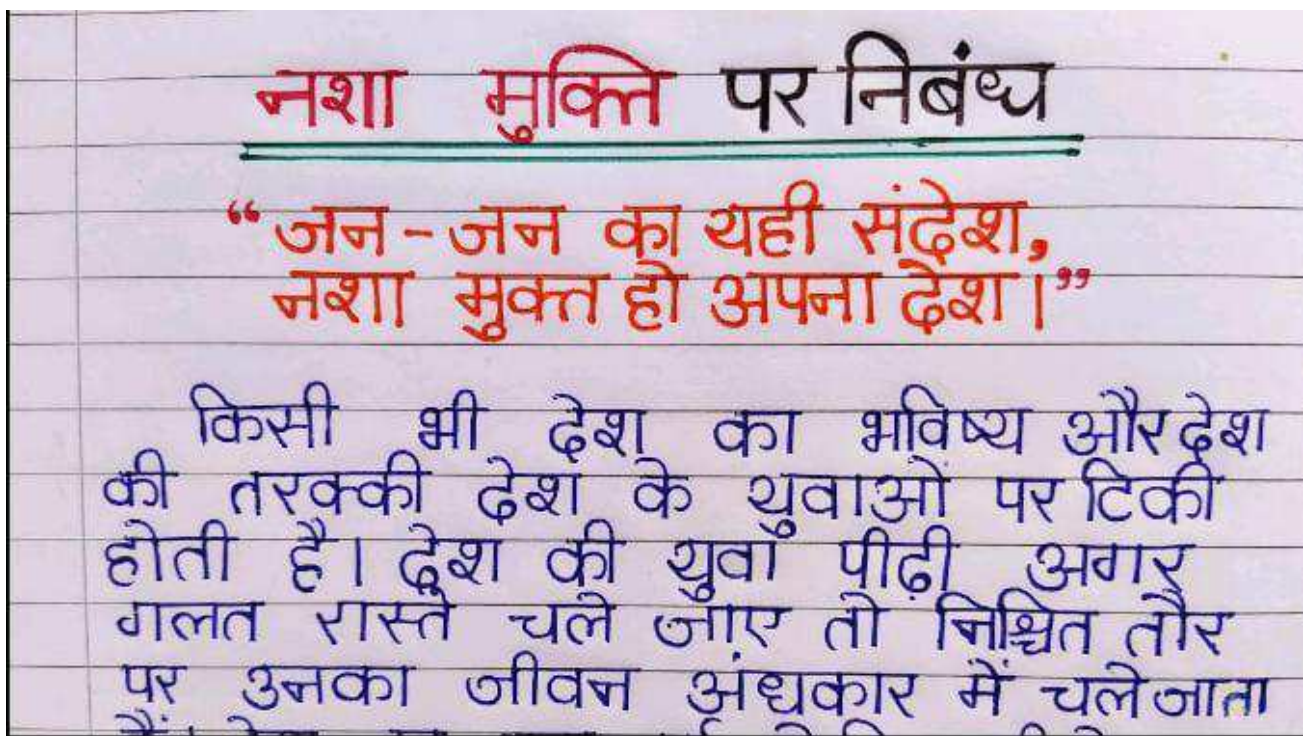 नशा मुक्ति पर निबंध
“जन-जन का यही संदेश,
नशा मुक्त हो अपना देश।”
किसी भी देश का भविष्य और देश
की तरक्की देश के युवाओं पर टिकी
होती है। देश की युवा पीढ़ी अगर
गलत रास्ते चले जाए तो निश्चित तौर
पर उनका जीवन अंधकार में चले जाता